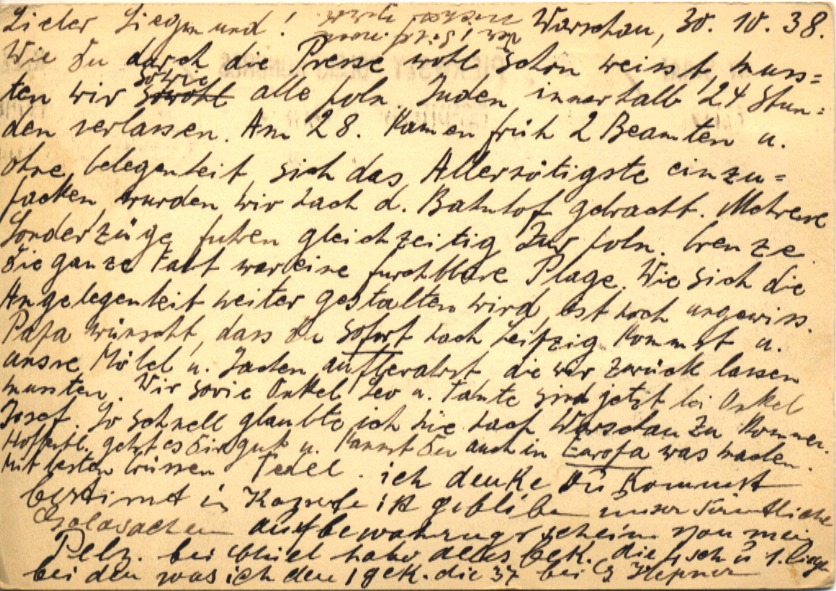 Lieber Siegmund! Warschau, 30. 10. 38.
Wie Du durch die Presse wohl schon weisst muss=
ten wir sowohl sowie alle poln. Juden innerhalb 24 Stun=
den verlassen. Am 28. kamen früh 2 Beamten u.
ohne Gelegenheit sich das Allernötigste einzu=
packen, wurden wir nach d. Bahnhof gebracht. Mehrere
Sonderzüge fuhren gleichzeitig zur poln. Grenze.
Die ganze Fahrt war eine furchtbare Plage. Wie sich die
Angelegenheit weiter gestalten wird, ist noch ungewiss.
Papa wünscht, dass Du sofort nach Leipzig kommst u.
unsre Möbel u. Sachen aufbewahrst die wir zurück lassen
mussten. Wir sowie Onkel Leo u. Tante sind jetzt bei Onkel
Josef. So schnell glaubte ich nie nach Warschau zu kommen.
Hoffentl. geht es Dir gut u. kannst Du auch in Europa was machen.
Mit besten Grüssen ich denke Du kommst
bestimt in ist gebliben unser
Goldsachen aufbewahrungsschein von mein
Pelz. bei habe die
bei den was ich den die 37 bei